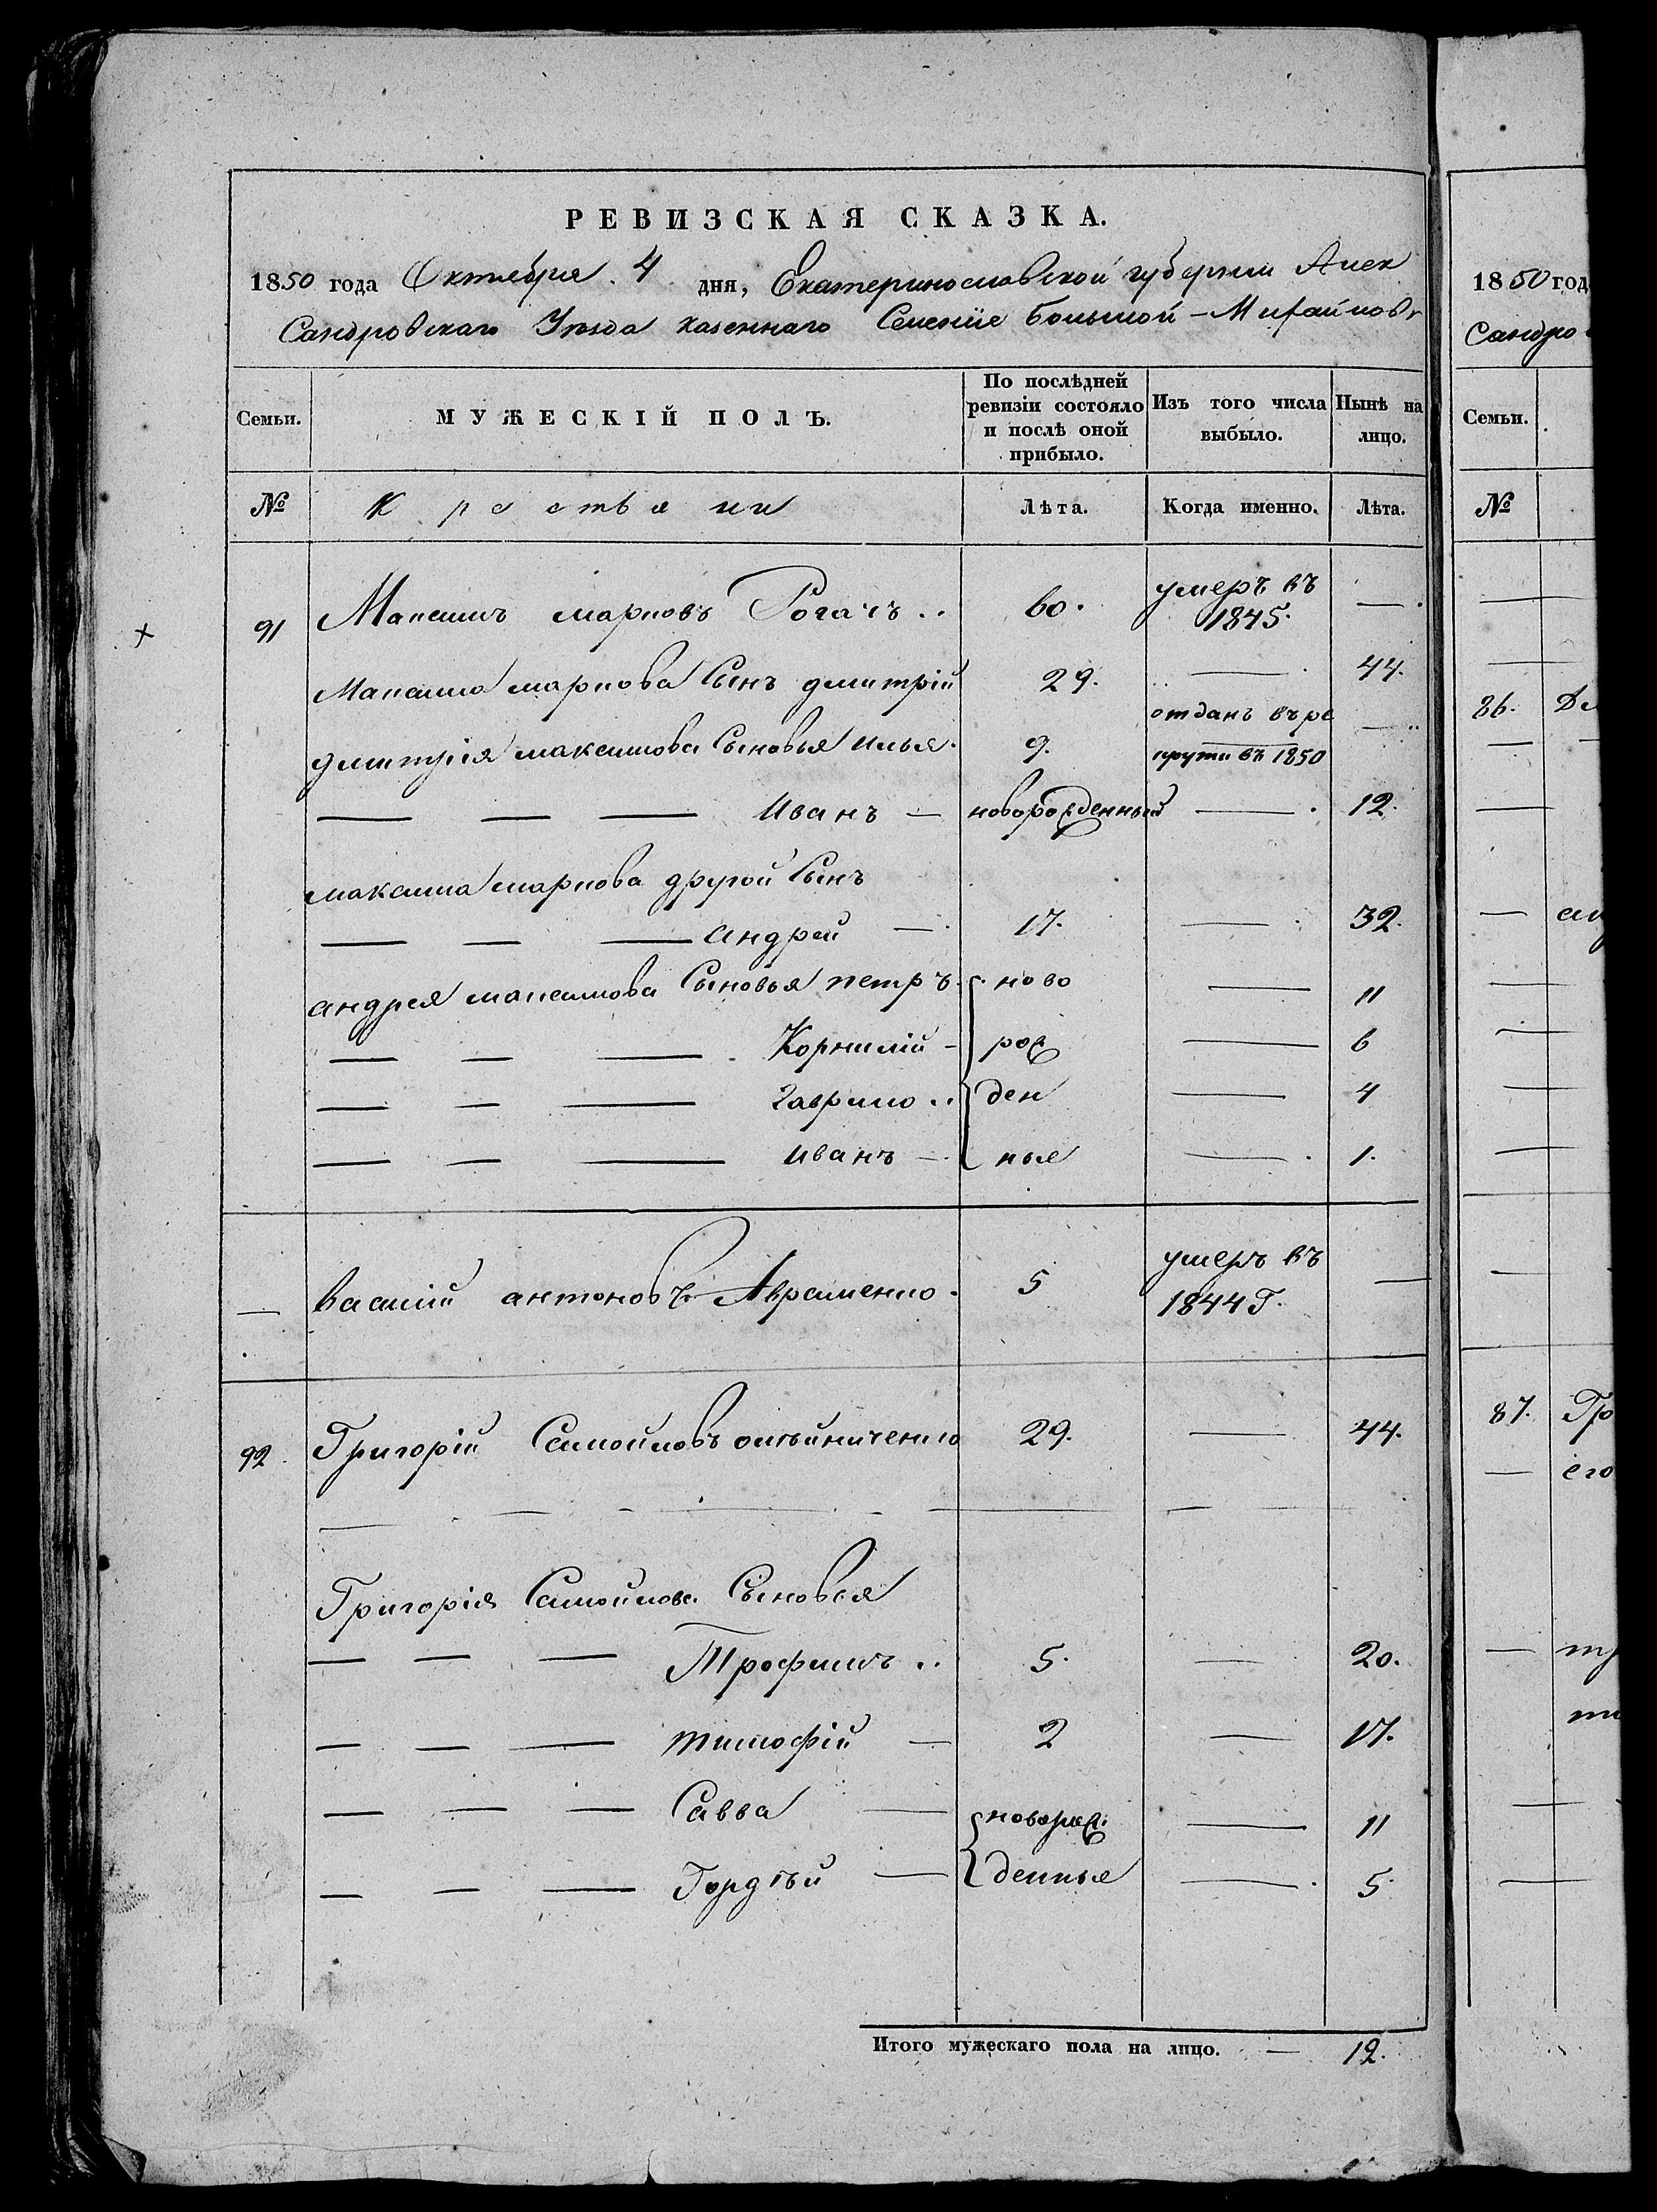 РЕВИЗСКАЯ СКАЗКА.
1850 года Октября 4 дня, Екатеринославской губернии Алек
Сандровскаго Уезда казеннаго Селенiе Большой-Михайловк
Семьи. МУЖЕСКІЙ ПОЛЪ. По послѣдней ревизіи состояло и послѣ оной прибыло. Изъ того числа выбыло. Нынѣ на лицо.
№ Крестьяни Лѣта. Когда именно. Лѣта.
+ 91 Максимъ марковъ Рогачъ .. 60. умеръ въ 1845. —.
Максима маркова Сынъ дмитрій 29. — 44.
дмитрія максимова Сыновья илья. 9. отданъ въ ре круты въ 1850 —
— — — Иванъ — новорожденный — 12.
максима маркова другой Сынъ
— — — андрей — 17. — 32.
андрея максимова Сыновья петръ ново — 11
— — — Корнилій — рож — 6
— — — гаврило .. ден — 4
— — — иванъ — ные — 1.
— василій антоновъ Авраменко. 5 умеръ въ 1844 Г. —
92. Григорій Самойловъ олѣйниченко 29. — 44.
Григорія Самойлова Сыновья
— — — Трофимъ .. 5. — 20.
— — — тимофій — 2 — 17.
— — — Савва — новорож. — 11
— — — Гордѣй — денные — 5.
Итого мужескаго пола на лицо. — 12.
1850 год
Сандро
Семьи.
№
86.
87. Гро
его